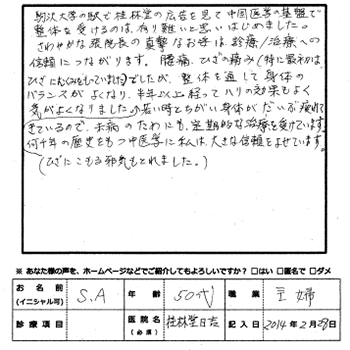 駒沢大学の駅で桂林堂の広告を見て中国医学の基盤で
整体を受けるのは、有り難いと思いはじめました。
さわやかな張院長の真摯なお侍は 診療/治療への
信頼につながります。腰痛、ひざの痛み(特に最初は
でしたが、整体を通して身体の
バランスが よくなり、半年以上経って ハリの効果もよく
気がよくなりました→若い時とちがい身体が だいぶ疲れて
きているので、未病のためにも、定期的な治療を受けています。
何千年の歴史をもつ中医学に私は、大きな信頼をよせています。
(ひざにこもる邪気もとれました。)
※ あなた様の声を、ホームページなどでご紹介してもよろしいですか? □はい □匿名で □ダメ
お名前 (イニシャル可) S.A 年齢 50代 職業 主婦
診療項目 医院名 (必須) 桂林堂日吉 記入日 2014年2月28日